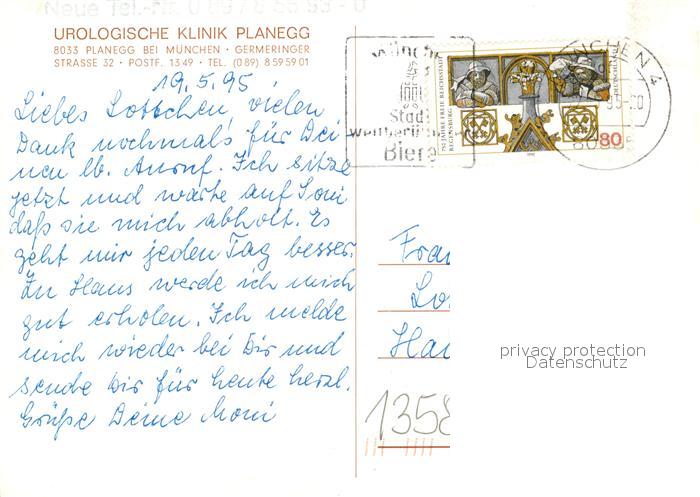 Neue Tel.-Nr. 0 89 / 8 56 93 - 0
UROLOGISCHE KLINIK PLANEGG
8033 PLANEGG BEI MÜNCHEN · GERMERINGER
STRASSE 32 · POSTF. 1349 · TEL. (089) 8595901
19.5.95
Liebes Lottchen, vielen
Dank nochmals für Dei
nen lb. Anruf. Ich sitze
jetzt und warte auf Toni
daß sie mich abholt. Es
geht mir jeden Tag besser.
Zu Haus werde ich mich
gut erholen. Ich melde
mich wieder bei Dir und
sende Dir für heute herzl.
Grüße Deine Moni
Münche
Stadt
weltberühmter
Biere
NCHEN 4
95-20
750 JAHRE FREIE REICHSSTADT
REGENSBURG
DEUTSCHLAND
80
1995
Frau
Lo
Hau
1358
privacy protection
Datenschutz